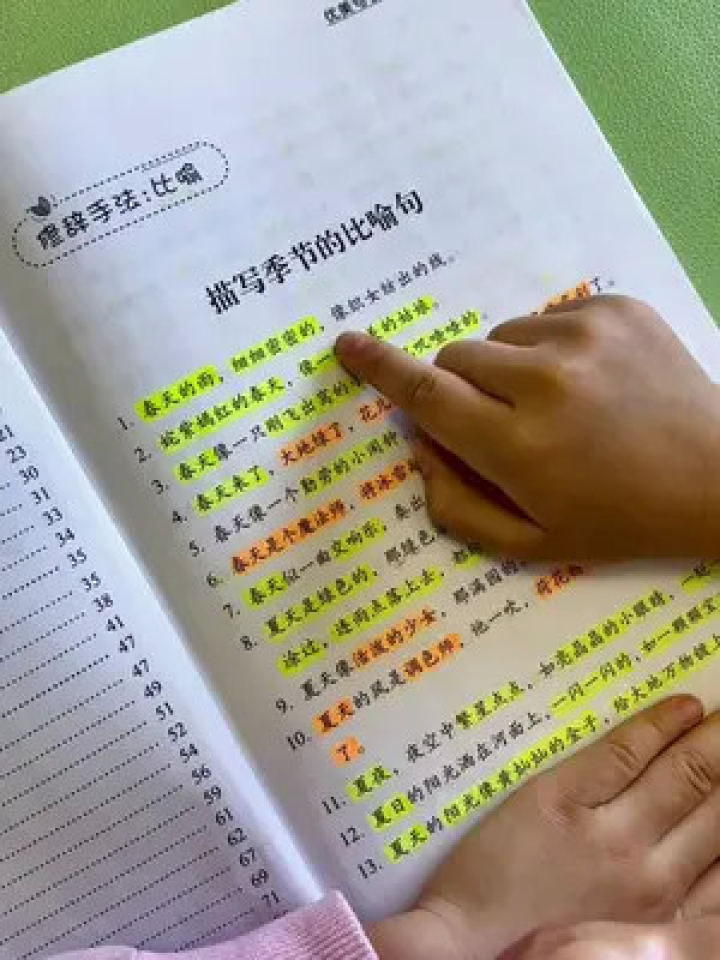 21
23
30
31
33
34
35
35
38
41
47
47
49
51
52
54
56
59
61
62
67
69
71
优美句
修辞手法:比喻
描写季节的比喻句
1. 春天的雨,细细密密的,像织女纺出的线。
2. 姹紫嫣红的春天,像一 的姑娘。
3. 春天像一只刚飞出窝的 叽喳喳的
4. 春天来了,大地绿了,花儿 了。
5. 春天像一个勤劳的小闹钟,
6. 春天是个魔法师,将冰雪
7. 春天似一曲交响乐,奏出
8. 夏天是绿色的,那绿色
涂过,连雨点落上去,都
9. 夏天像活泼的少女,那满园的
10. 夏天的风是调色师,他一吹,荷花
了。
11. 夏夜,夜空中繁星点点,如亮晶晶的小眼睛,一
12. 夏日的阳光洒在河面上,一闪一闪的,如一颗颗宝
13. 夏天的阳光像黄灿灿的金子,给大地万物镀上